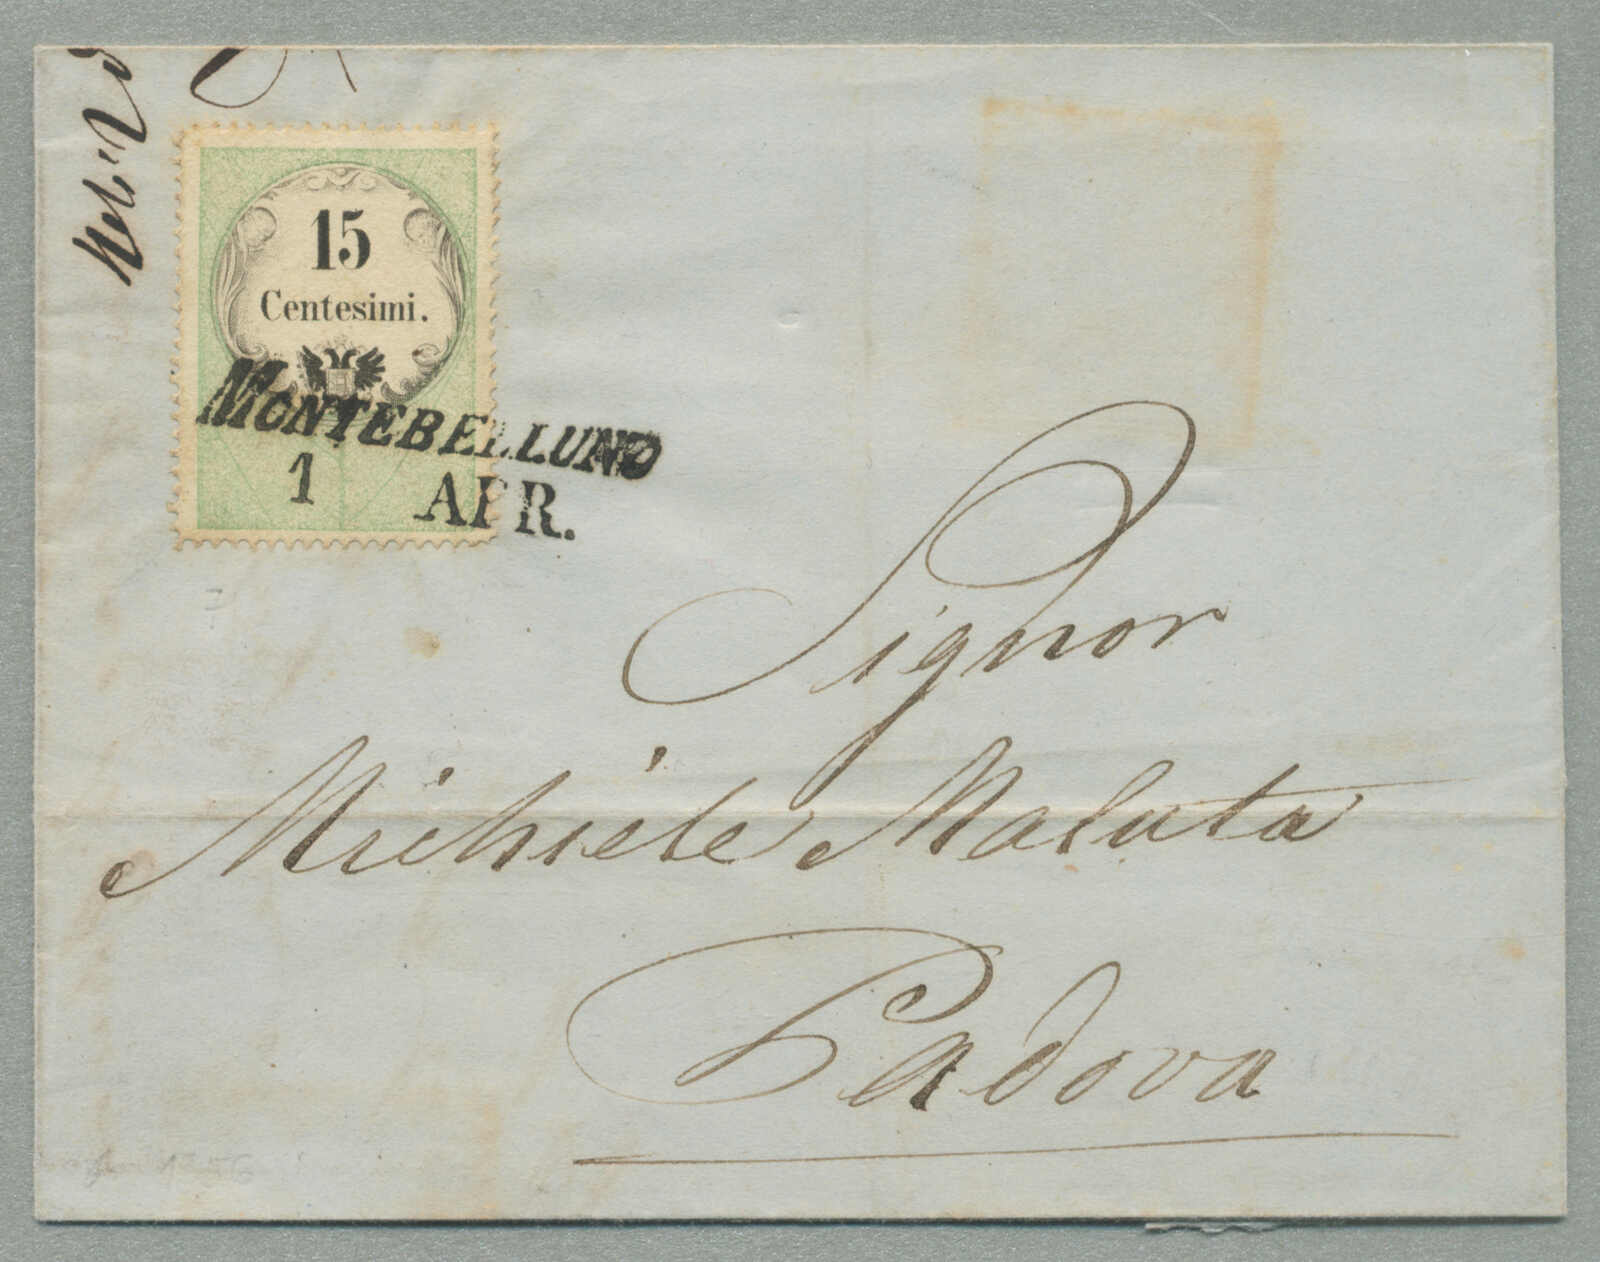 15
Centesimi.
MONTEBELLUNO
1 APR.
Signor
Michiele Maluta
Padova